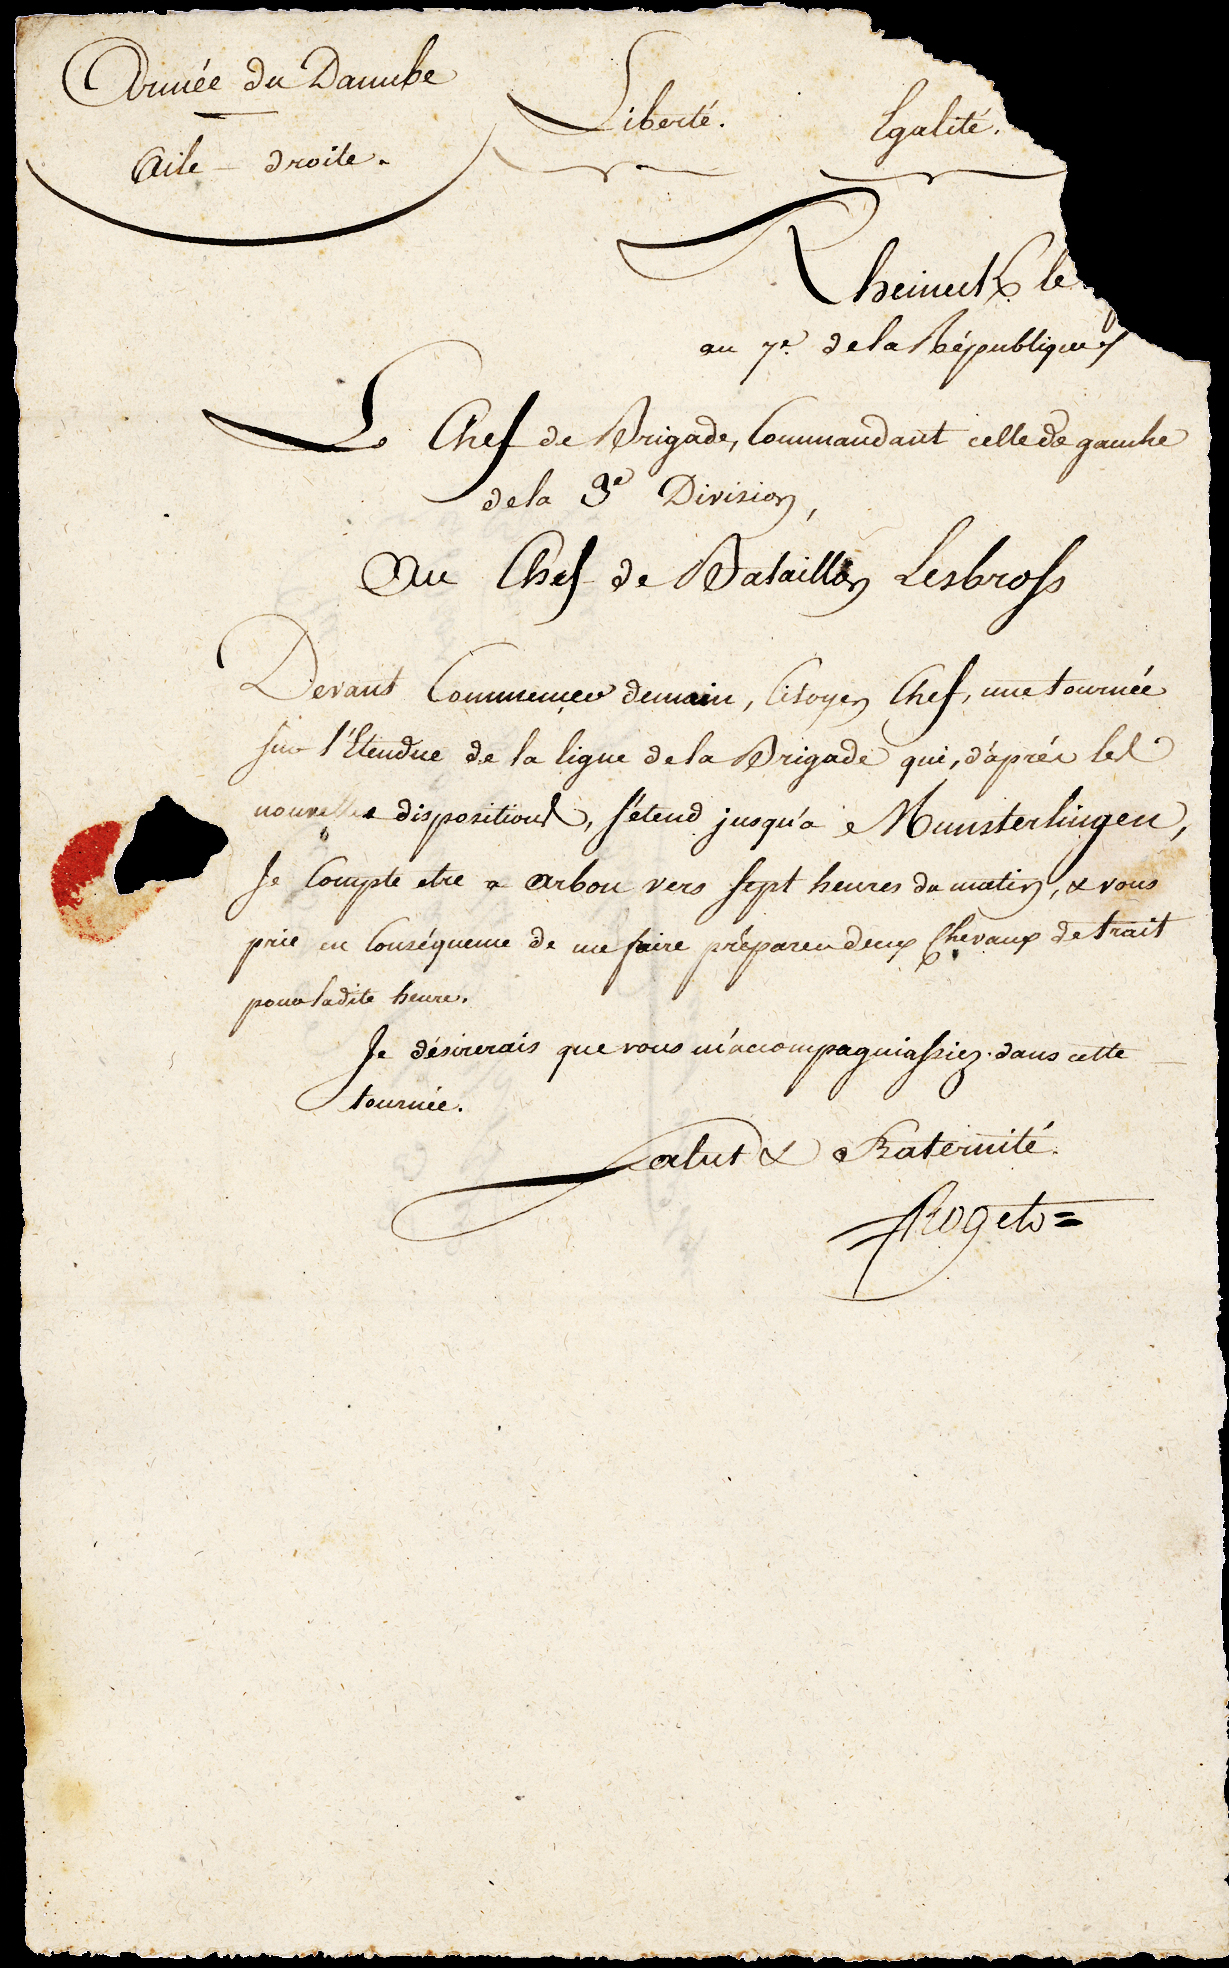 Armée du Danube
Liberté. Egalité.
Aile - droite.
Rheineck le
an 7e. de la République
Le Chef de Brigade, Commandant celle de gauche
de la 3e Division,
Au Chef de Bataillon Lesbross
Devant Commencer demain, Citoyen Chef, une tournée
sur l'Etendue de la ligne de la Brigade qui, d'après les
nouvelles dispositions, s'étend jusqu'à Munsterlingen,
Je Compte etre a arbon vers sept heures du matin, & vous
prie en Conséquence de me faire préparer deux Chevaux de trait
pour ladite heure.
Je désirerais que vous m'accompagniassiez dans cette
tournée.
Salut & Fraternité.
Roget